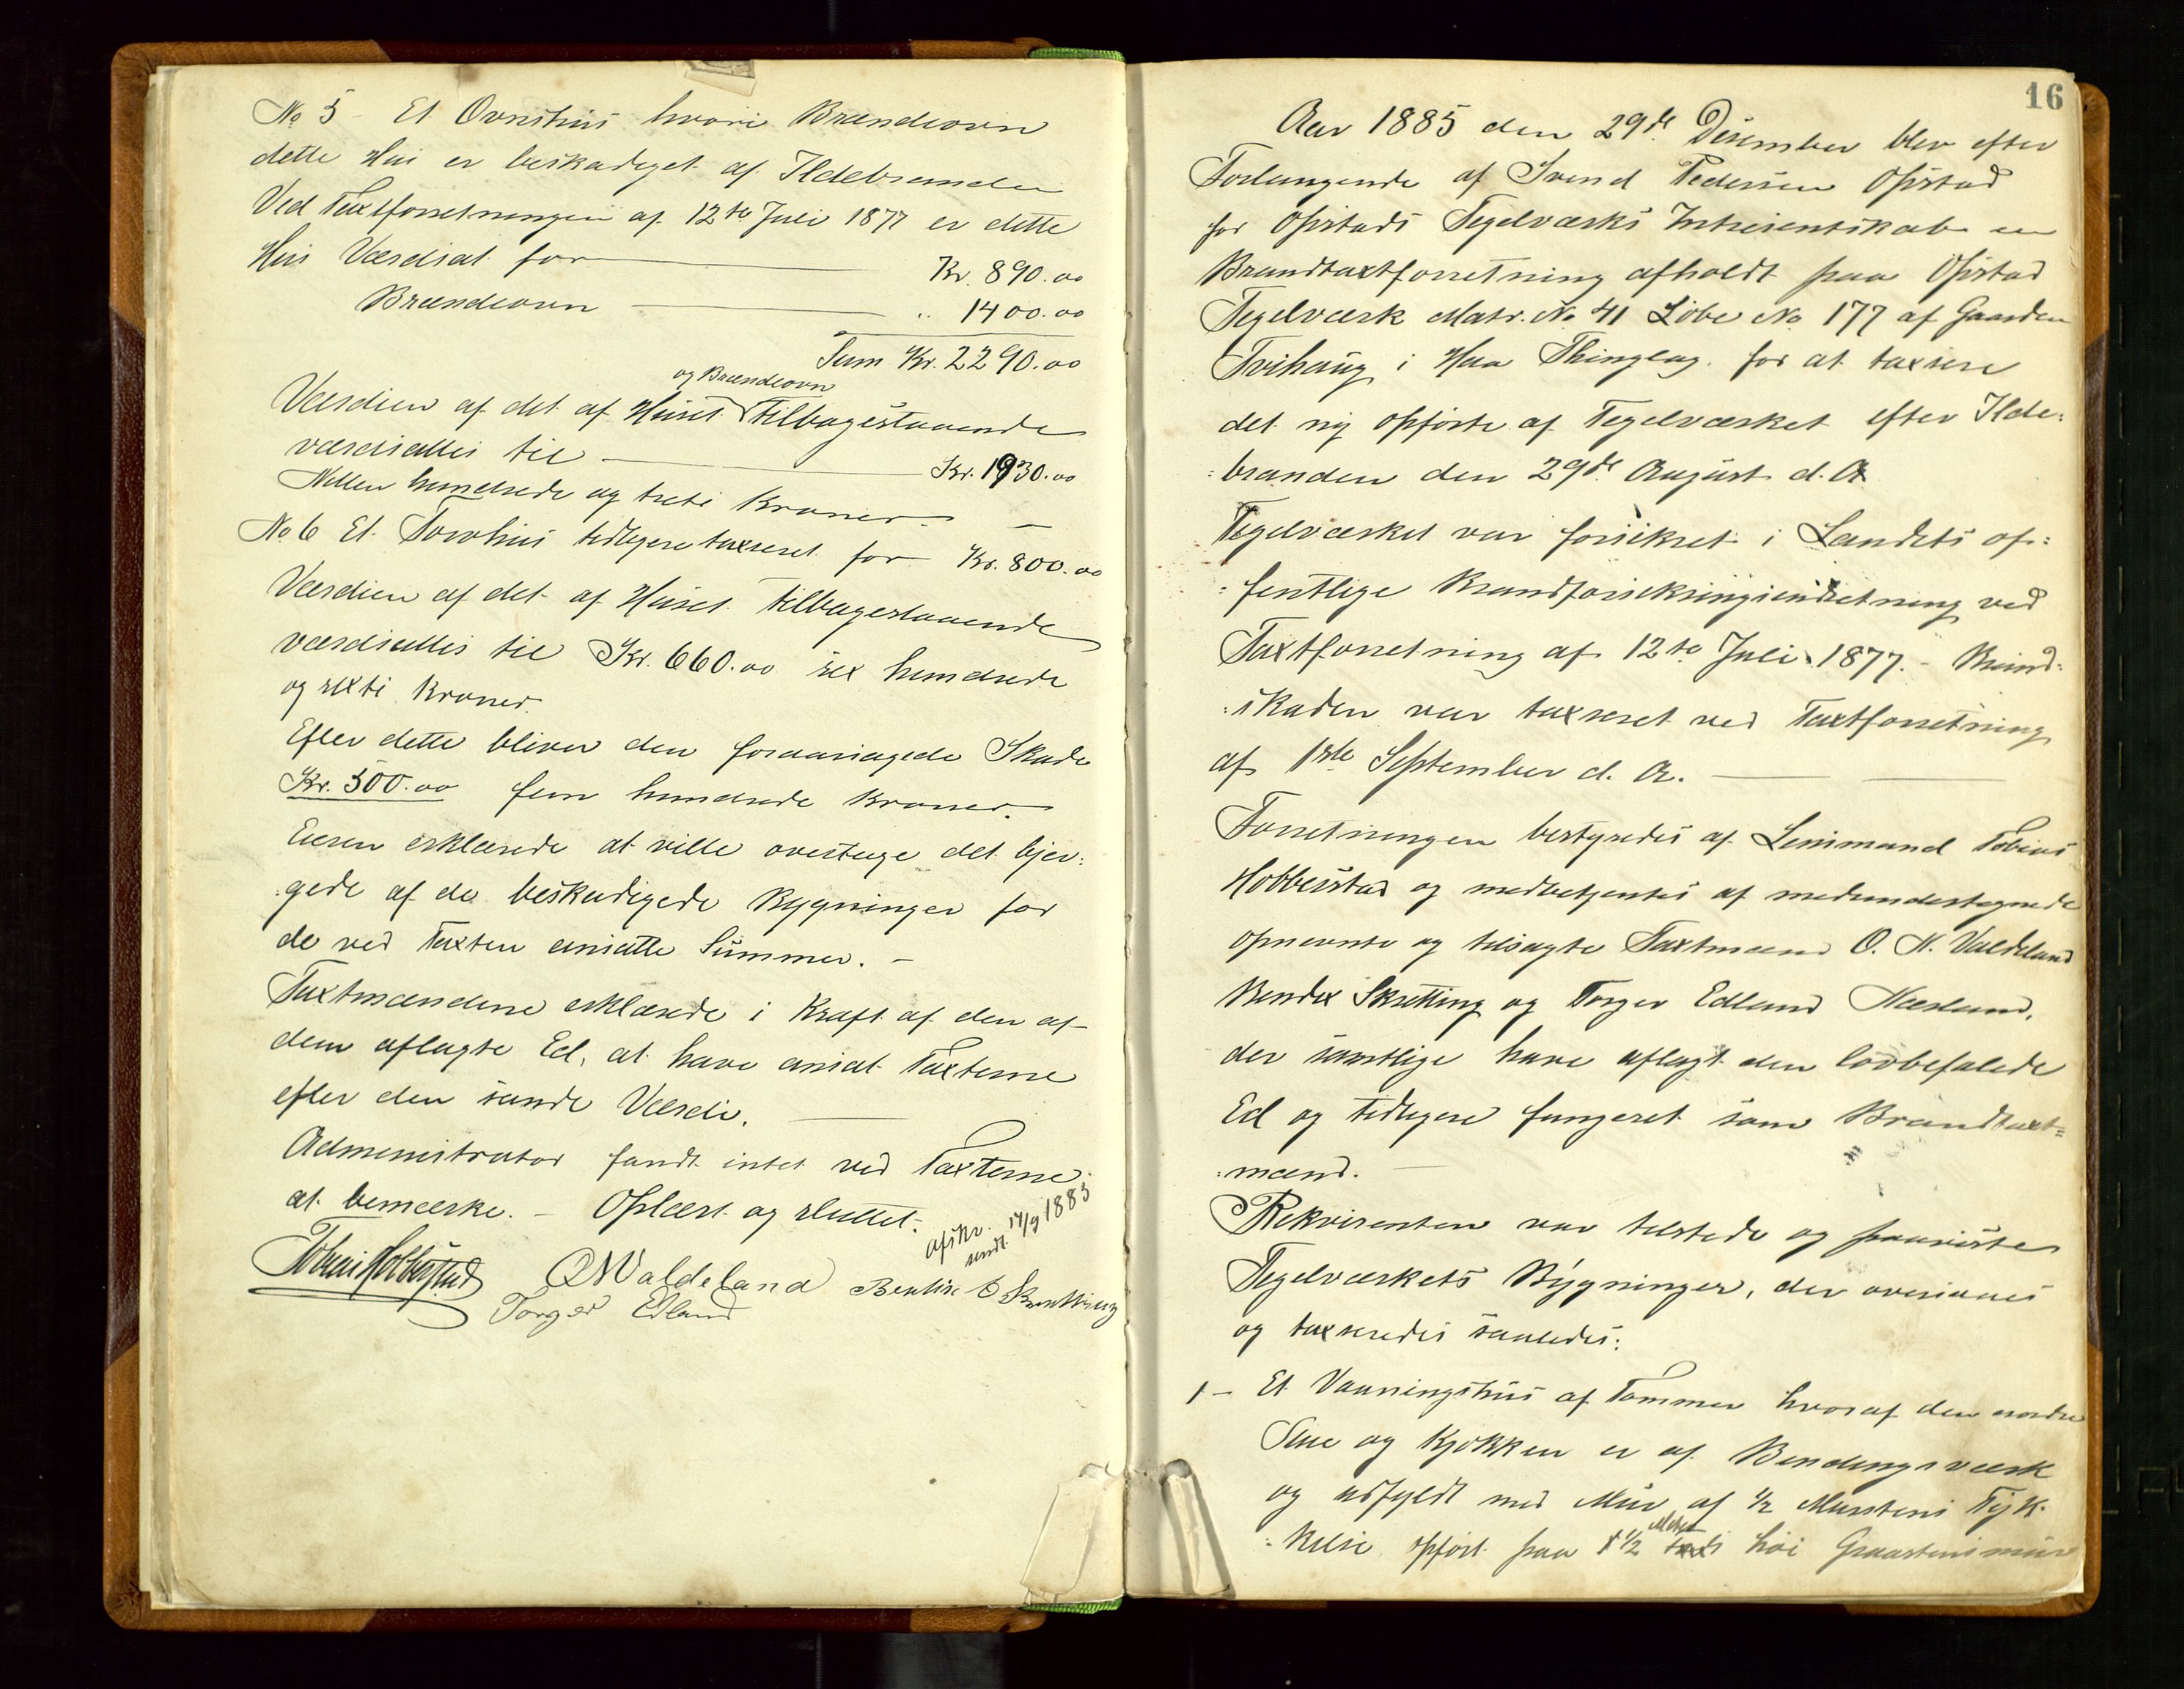 No 5 - Et Ovnshus hvori Brændeovn
dette Hus er beskadiget af Ildebranden
Ved Taxtforretningen af 12te Juli 1877 er dette
Hus Værdisat for Kr. 890.00
Brændeovn " 1400.00
Sum Kr. 2290.00
og Brændeovn
Værdien af det af Huset tilbagestaaende
værdisattes til Kr. 1930.00
Nitten hundrede og treti Kroner -
No 6 Et Torvhus tidligere taxseret for Kr. 800.00
Værdien af det af Huset tilbagestaaende
værdisattes til Kr. 660.00 sex hundrede
og sexti Kroner.
Efter dette bliver den foraarsagede Skade
Kr. 500.00 fem hundrede Kroner.
Eieren erklærede at ville overtage det bjer:
:gede af de beskadigede Bygninger for
de ved Taxten ansatte Summer. -
Taxtmændene erklærede i Kraft af den af
dem aflagte Ed, at have ansat Taxterne
efter den sande Værdi.
Administrator fandt intet ved Taxterne
at bemærke. - Oplæst og sluttet.
afskr. sendt 17/9 1885
Tobias Hobberstad ONValdeland Bentsε O Skrætting
Torger Edland
16
Aar 1885 den 29de Desember blev efter
Forlangende af Svend Pedersen Opstad
for Opstads Tegelværks Intresentskab en
Brandtaxtforretning afholdt paa Opstad
Tegelværk Matr. No 41 Løbe No 177 af Gaarden
Tvihaug i Haa Thinglag for at taxsere
det ny opførte af Tegelværket efter Ilde:
:branden den 29de August d. A
Tegelværket var forsikret i Landets of:
:fentlige Brandforsikringsindretning ved
Taxtforretning af 12te Juli 1877. - Brand:
:skaden var taxseret ved Taxtforretning
af 1ste September d. A.
Forretningen bestyredes af Lensmand Tobias
Hobberstad og medbetjentes af medundertegnede
opnevnte og tilsagte Taxtmænd O. N. Valdeland
Bendix Skretting og Torger Edland Nærland,
der samtlige have aflagt den lovbefalede
Ed og tidligere fungeret som Brandtaxt=
:mænd.
Rekvirenten var tilstede og paaviste
Tegelværkets Bygninger, der oversaaes
og taxseredes saaledes:
1 - Et Vaaningshus af Tømmer hvoraf den nordre
Stue og Kjøkken er af Bendingsværk
og udfyldt med Mur af 1/2 Murstens Tyk:
Meter
:kelse opført paa 1/2 høi Graastensmur